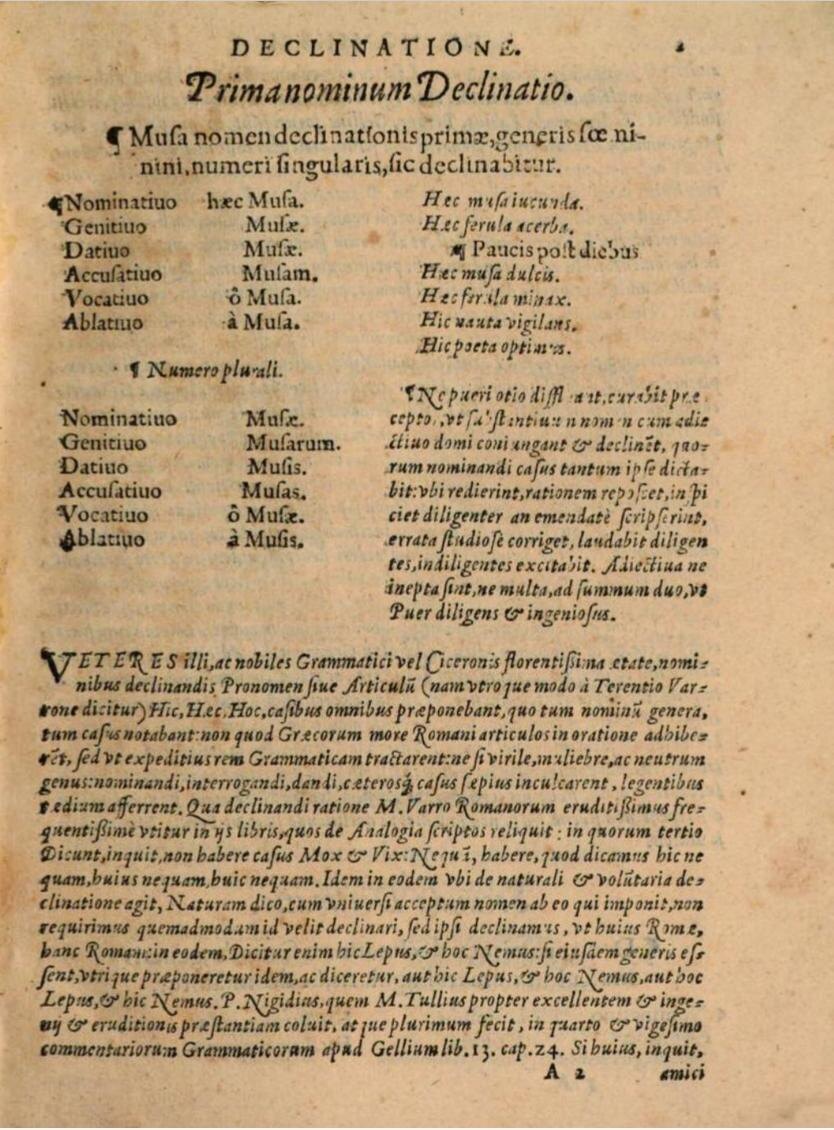 DECLINATIONE.
Prima nominum Declinatio.
¶ Muſa nomen declinationis primæ, generis fœ ni-
nini, numeri ſingularis, ſic declinabitur.
¶Nominatiuo hæc Muſa.
Genitiuo Muſæ.
Datiuo Muſæ.
Accuſatiuo Muſam.
Vocatiuo ô Muſa.
Ablatiuo à Muſa.
¶ Numero plurali.
Nominatiuo Muſæ.
Genitiuo Muſarum.
Datiuo Muſis.
Accuſatiuo Muſas.
Vocatiuo ô Muſæ.
Ablatiuo à Muſis.
Hæc muſa iucunda.
Hæc ferula acerba.
¶ Paucis poſt diebus
Hæc muſa dulcis.
Hæc ferula minax.
Hic nauta vigilans.
Hic poeta optimus.
¶Ne pueri otio diffluant, curabit præ
ceptor, vt ſubſtantiuum nomen cum adie
ctiuo domi coniungant & declinẽt, quo-
rum nominandi caſus tantum ipſe dicta-
bit: vbi redierint, rationem repoſcet, inſpi
ciet diligenter an emendatè ſcripſerint,
errata ſtudioſè corriget, laudabit diligen
tes, indiligentes excitabit. Adiectiua ne
inepta ſint, ne multa, ad ſummum duo, vt
Puer diligens & ingenioſus.
VETERES illi, ac nobiles Grammatici vel Ciceronis florentißima ætate, nomi-
nibus declinandis Pronomen ſiue Articulũ (nam vtroque modo à Terentio Var-
rone dicitur) Hic, Hæc, Hoc, caſibus omnibus præponebant, quo tum nominũ genera,
tum caſus notabant: non quod Græcorum more Romani articulos in oratione adhibe-
rẽt, ſed vt expeditius rem Grammaticam tractarent: ne ſi virile, muliebre, ac neutrum
genus: nominandi, interrogandi, dandi, cæterosq́; caſus ſæpius inculcarent, legentibus
tædium afferrent. Qua declinandi ratione M. Varro Romanorum eruditißimus fre-
quentißimè vtitur in ijs libris, quos de Analogia ſcriptos reliquit: in quorum tertio
Dicunt, inquit, non habere caſus Mox & Vix: Nequã, habere, quod dicamus hic ne
quam, huius nequam, huic nequam. Idem in eodem vbi de naturali & volũtaria de-
clinatione agit, Naturam dico, cum vniuerſi acceptum nomen ab eo qui imponit, non
requirimus quemadmodam id velit declinari, ſed ipſi declinamus, vt huius Romæ,
hanc Romam: in eodem, Dicitur enim hic Lepus, & hoc Nemus: ſi eiuſdem generis eſ-
ſent, vtrique præponeretur idem, ac diceretur, aut hic Lepus, & hoc Nemus, aut hoc
Lepus, & hic Nemus. P. Nigidius, quem M. Tullius propter excellentem & inge-
nij & eruditionis præſtantiam coluit, atque plurimum fecit, in quarto & vigeſimo
commentariorum Grammaticorum apud Gellium lib. 13. cap. 24. Si huius, inquit,
A 2 amici